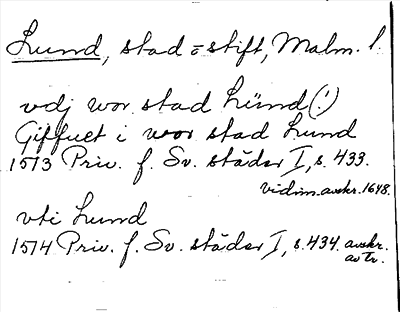 Lund, stad o stift, Malm. l.
vdj wor stad Lünd (!)
Giffuet i woor stad Lund
1513 Priv. f. Sv. städer I, s. 433.
vidim. avskr. 1648.
vti Lund
1514 Priv. f. Sv. städer I, s. 434. avskr.
av tr.